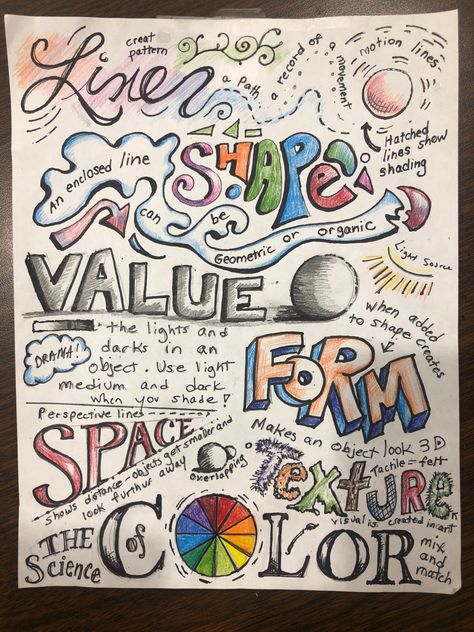 Line
creat
pattern
a Path
a record of
a
movement
motion lines
Hatched
lines show
shading
SHAPE
An enclosed line
can be
Geometric or organic
VALUE
Light Source
the lights and
darks in an
object. Use light
medium and dark
when you shade!
DRAMA!
when added
to shape creates
FORM
Makes an object look 3D
Perspective lines
SPACE
shows distance - objects get smaller and
look furthur away
overlapping
TEXTURE
Tactile = felt
visual is created in art
THE
Science
of
COLOR
mix
and
match